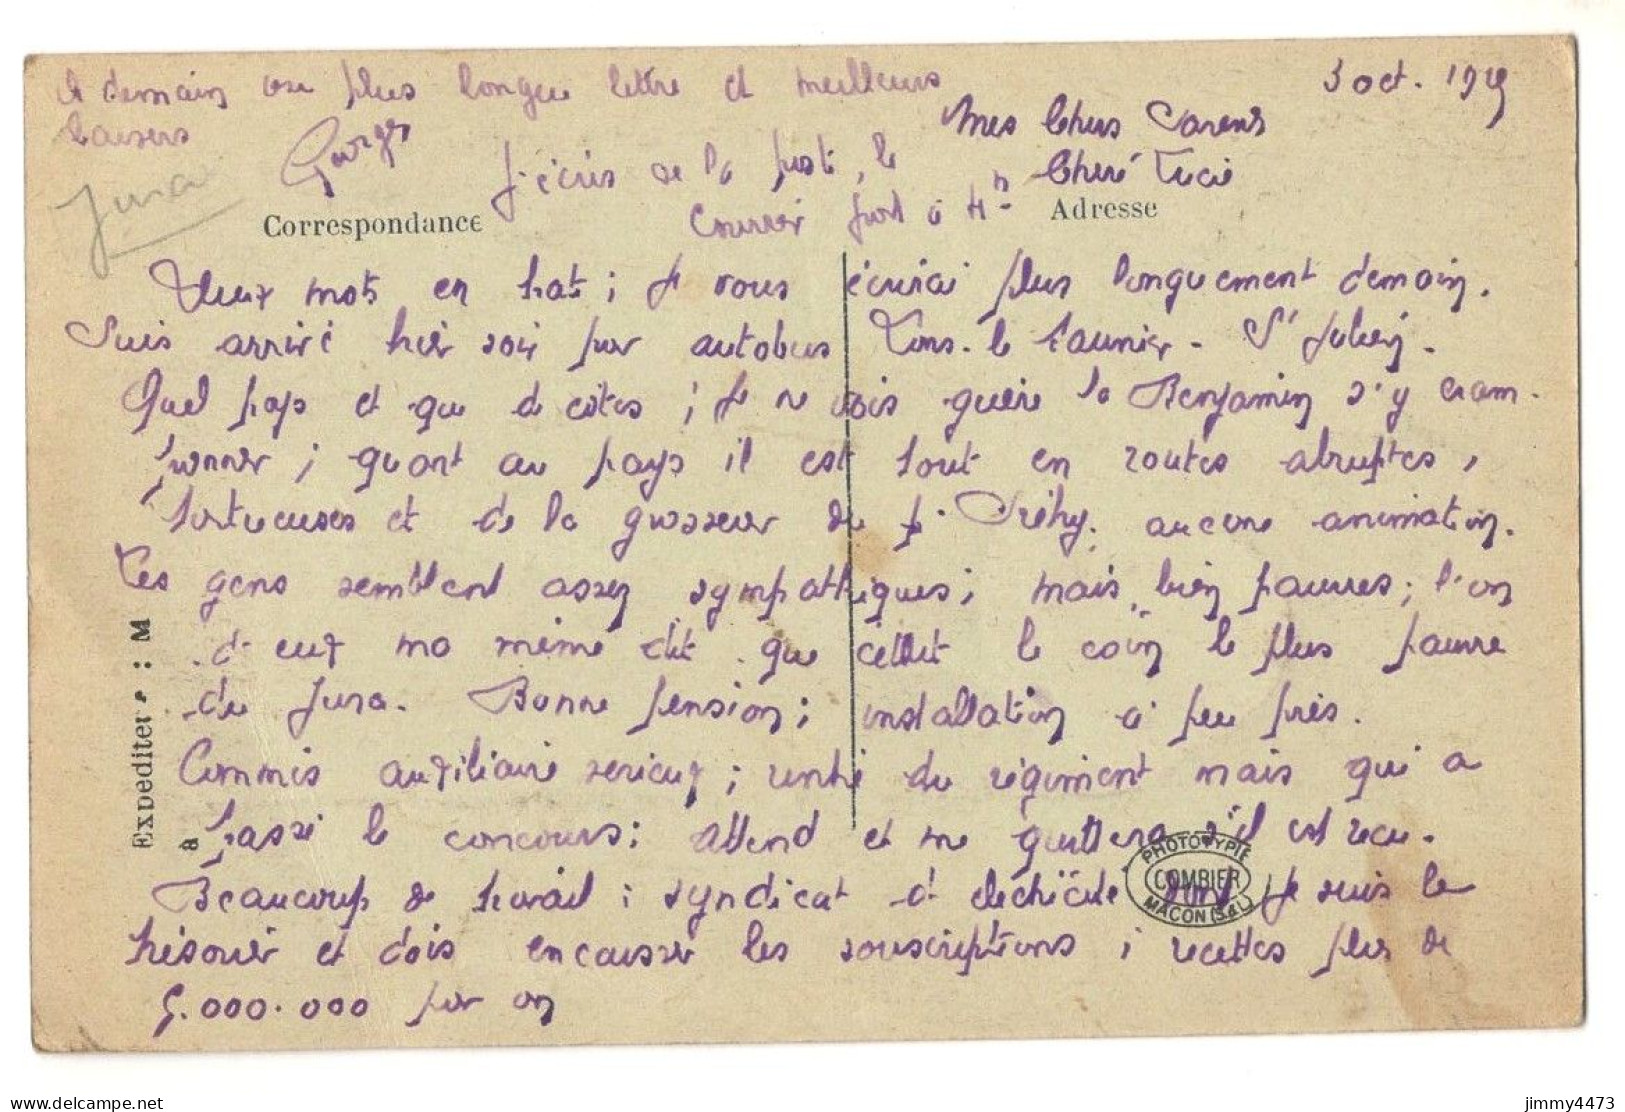 3 oct. 19
Mes Chers Parents
Chère Lucie
Deux mots en hate ; je vous écrirai plus longuement demain.
Suis arrivé hier soir par autobus Lons-le Saunier - St Julien.
Quel pays et que de côtes ; je ne vois guère la Benjamin s'y cram-
ponner ; quant au pays il est tout en routes abruptes,
tortueuses et de la grosseur du p. Tréhy. aucune animation.
Les gens semblent assez sympathiques ; mais bien pauvres ; l'on
d'eux ma même dit que c'était le coin le plus pauvre
du Jura. Bonne pension ; installation à peu près.
Commis auxiliaire sérieux ; rentre du régiment mais qui a
passé le concours ; attend et me quittera s'il est recu.
Beaucoup de travail ; syndicat d'électricité dont je suis le
trésorier et dois encaisser les souscriptions ; recettes plus de
5.000.000 par an
A demain une plus longue lettre et meilleurs
baisers
Georges
J'écris de la poste, le
courrier part à 4h
Jura
Correspondance
Adresse
Expediteur : M
a
PHOTOTYPIE
COMBIER
MACON (S.&L.)
delcampe.net
jimmy4473